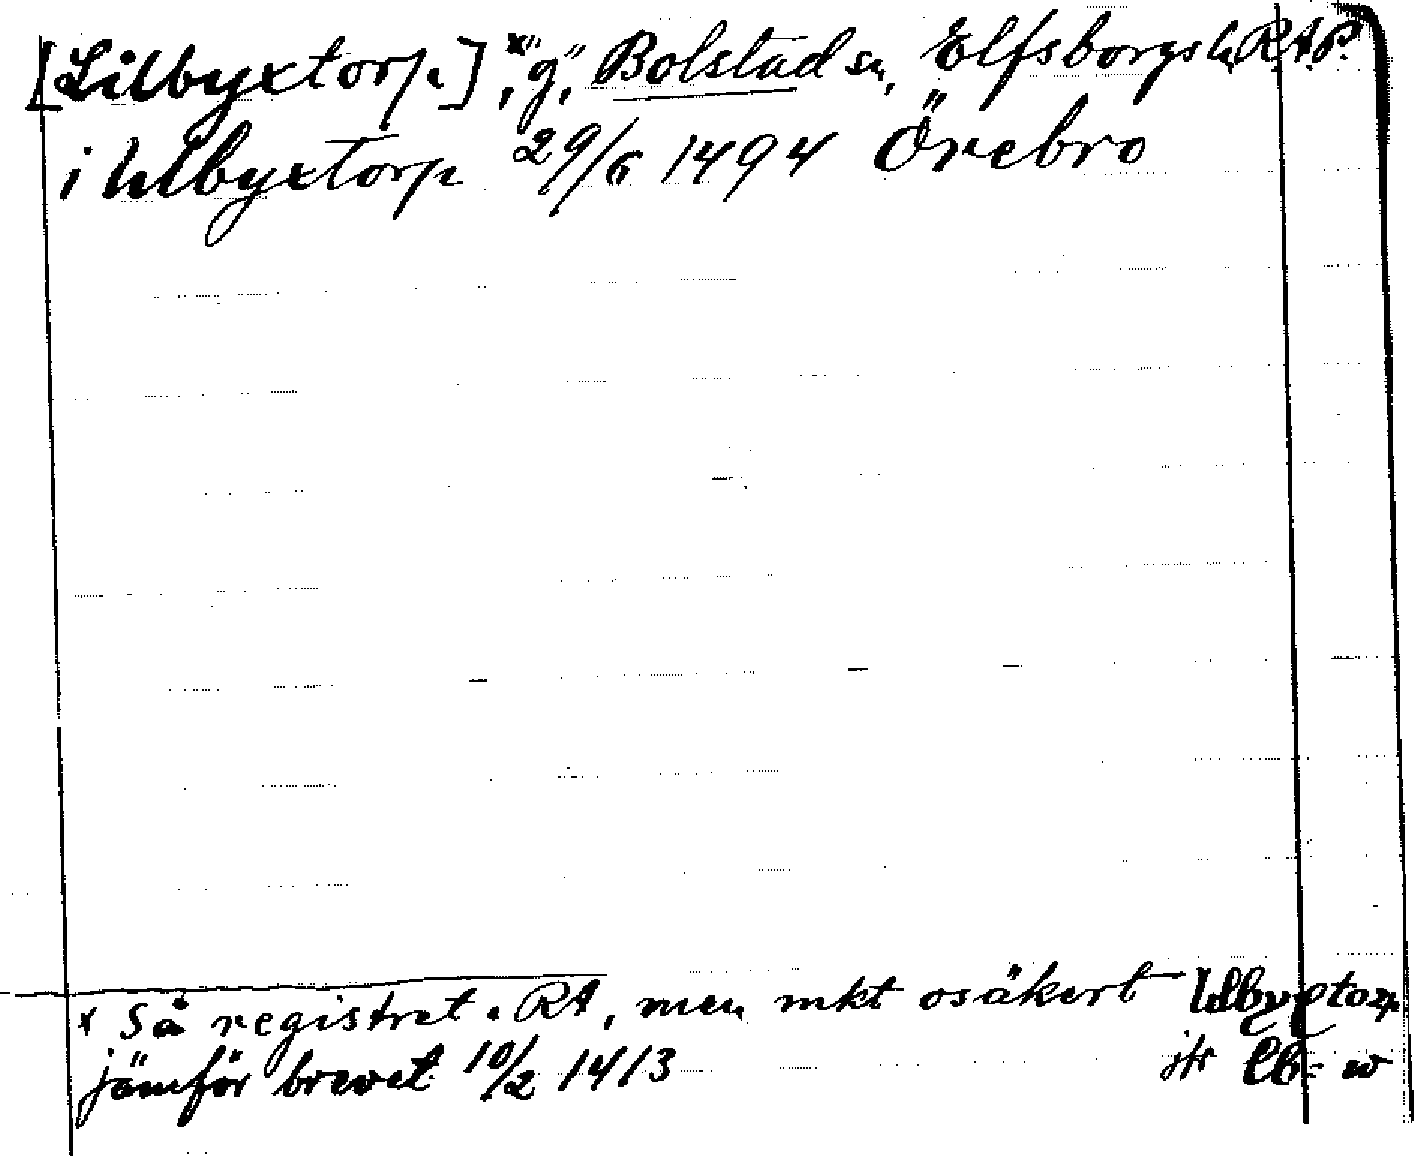 [Lilbyxtorp.]ˣ, "g", Bolstad sn, Elfsborgs l. R.A.P.
i Lilbyxtorp 29/6 1494 Örebro
x Så registrat. RA, men mkt osäkert
jämför brevet 10/2 1413